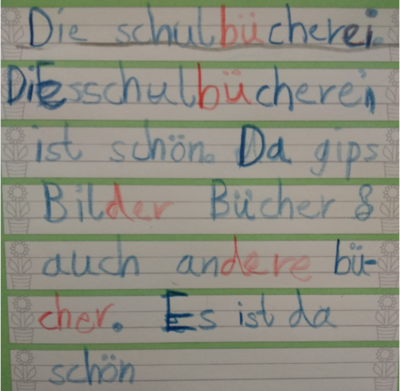 Die schulbücherei.
DiEsschulbücherei
ist schön. Da gips
Bilder Bücher &
auch andere bü-
cher. Es ist da
schön